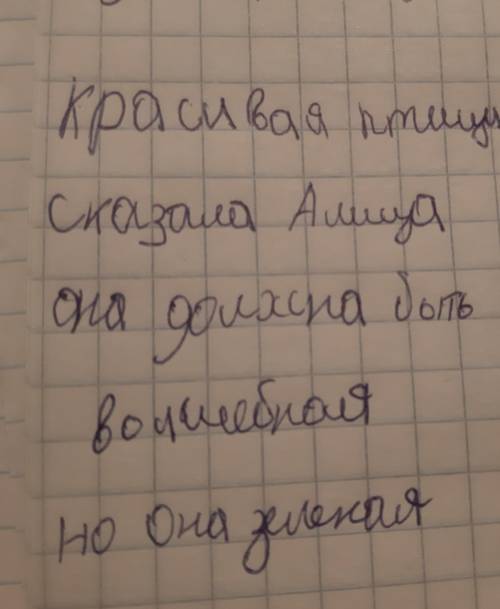 Красивая птица
сказала Алица
она должна быть
волшебная
но она зеленая